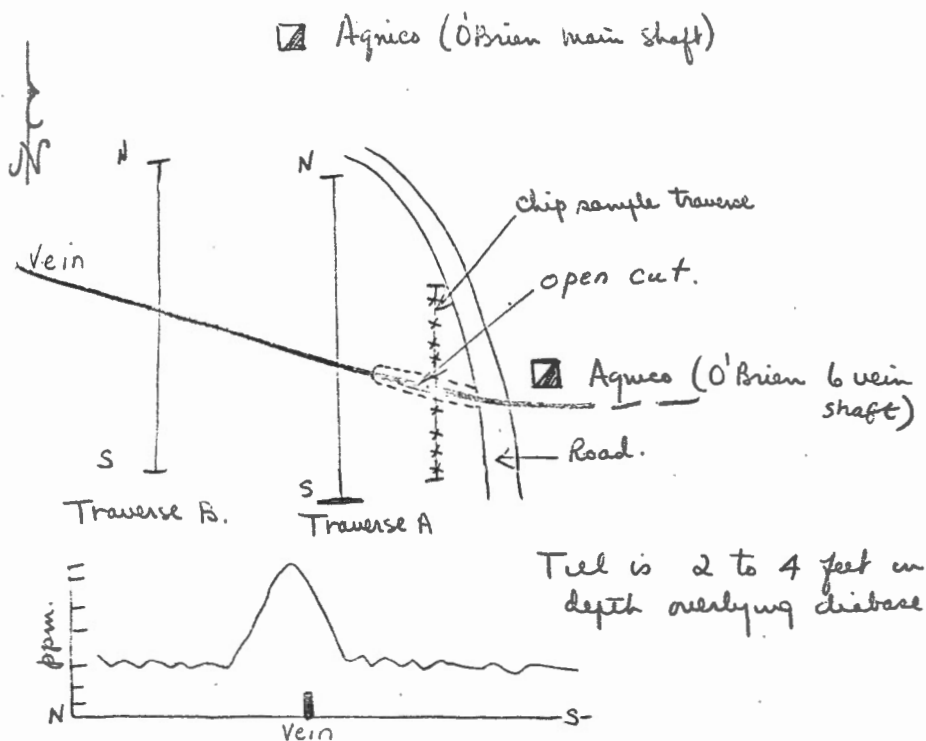 Agnico (O'Brien main shaft)
N
N
N
chip sample traverse
open cut.
Vein
Agnico (O'Brien 6 vein
shaft)
Road.
S
S
Traverse B.
Traverse A
Till is 2 to 4 feet in
depth overlying diabase
ppm.
N
S
Vein